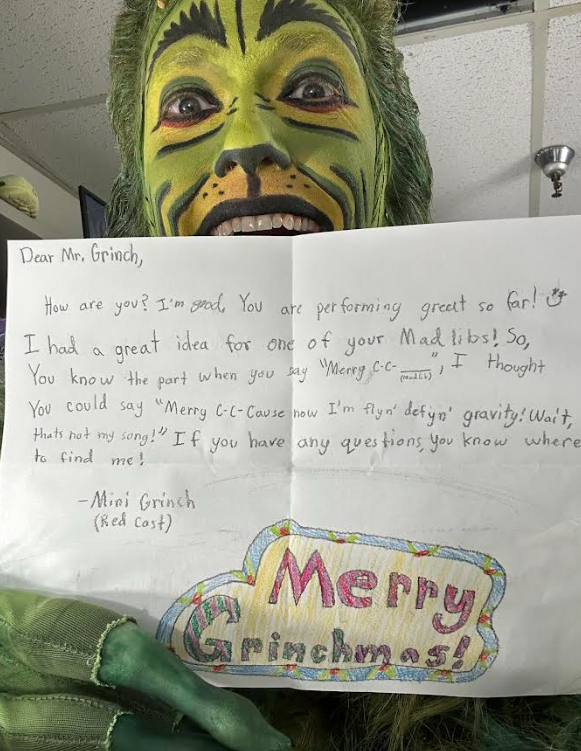 Dear Mr. Grinch,
How are you? I'm good. You are performing great so far!
I had a great idea for one of your Mad libs! So,
You know the part when you say "Merry C-C-____", I thought
(Mad Lib)
You could say "Merry C-C-Cause now I'm flyn' defyn' gravity! Wait,
thats not my song!" If you have any questions, you know where
to find me!
-Mini Grinch
(Red Cast)
Merry
Grinchmas!